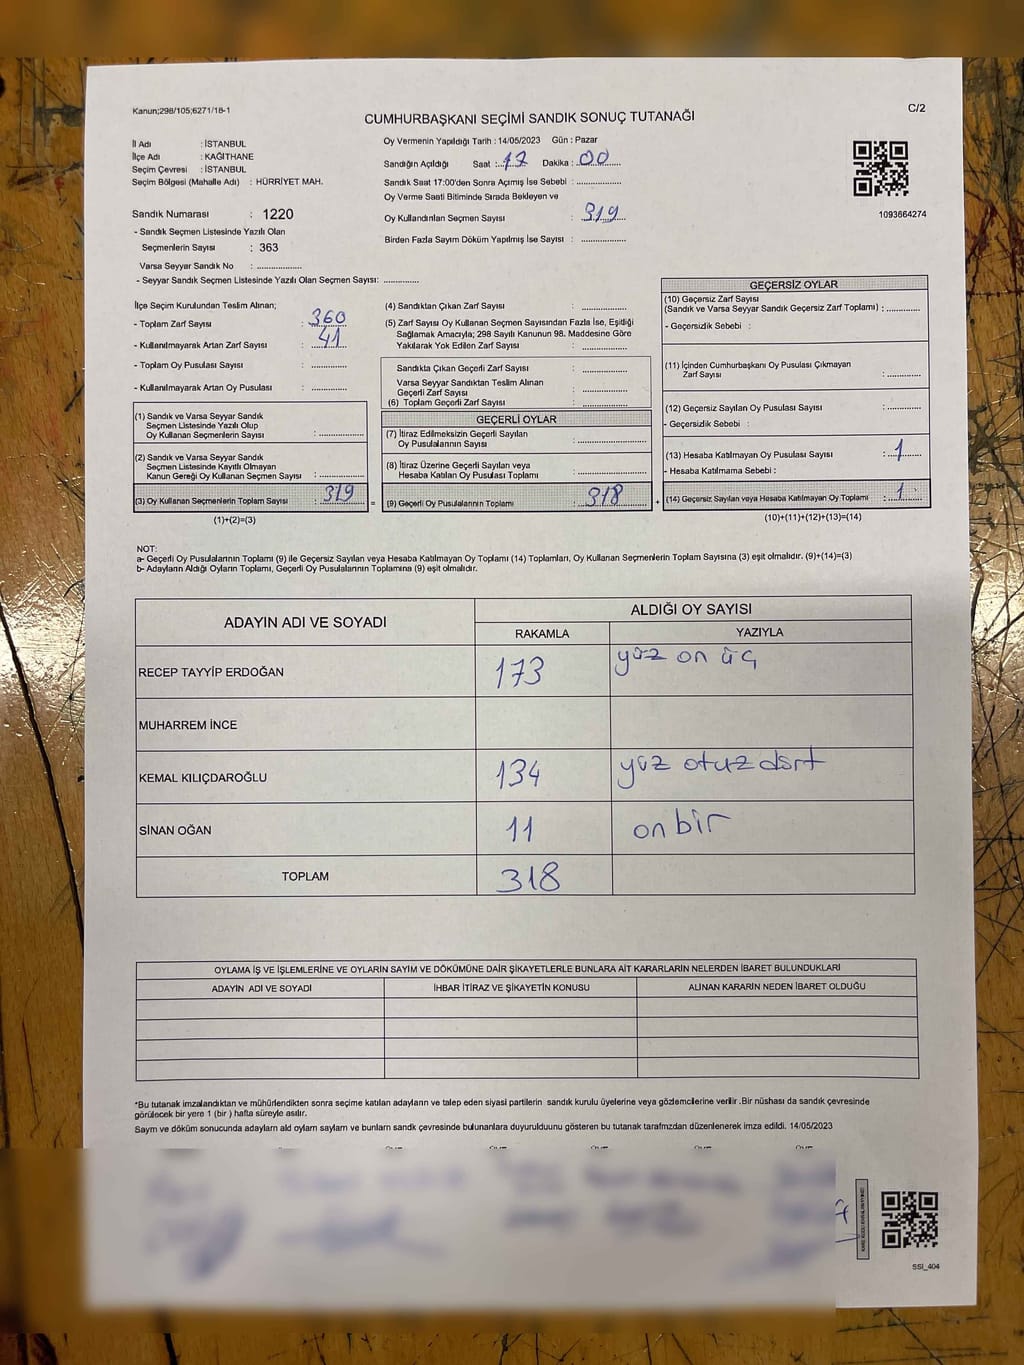 Kanun;298/105;6271/18-1
C/2
CUMHURBAŞKANI SEÇİMİ SANDIK SONUÇ TUTANAĞI
İl Adı : İSTANBUL
İlçe Adı : KAĞITHANE
Seçim Çevresi : İSTANBUL
Seçim Bölgesi (Mahalle Adı) : HÜRRİYET MAH.
Oy Vermenin Yapıldığı Tarih : 14/05/2023 Gün : Pazar
Sandığın Açıldığı Saat : 17 Dakika : 00
Sandık Saat 17:00'den Sonra Açımış İse Sebebi : ....................
Oy Verme Saati Bitiminde Sırada Bekleyen ve
Oy Kullandırılan Seçmen Sayısı : 319
Birden Fazla Sayım Döküm Yapılmış İse Sayısı : ....................
1093664274
Sandık Numarası : 1220
- Sandık Seçmen Listesinde Yazılı Olan
Seçmenlerin Sayısı : 363
Varsa Seyyar Sandık No : ....................
- Seyyar Sandık Seçmen Listesinde Yazılı Olan Seçmen Sayısı: ................
İlçe Seçim Kurulundan Teslim Alınan;
- Toplam Zarf Sayısı : 360
- Kullanılmayarak Artan Zarf Sayısı : 41
- Toplam Oy Pusulası Sayısı : ................
- Kullanılmayarak Artan Oy Pusulası : ................
(1) Sandık ve Varsa Seyyar Sandık
Seçmen Listesinde Yazılı Olup
Oy Kullanan Seçmenlerin Sayısı : ....................
(2) Sandık ve Varsa Seyyar Sandık
Seçmen Listesinde Kayıtlı Olmayan
Kanun Gereği Oy Kullanan Seçmen Sayısı : ....................
(3) Oy Kullanan Seçmenlerin Toplam Sayısı : 319 =
(1)+(2)=(3)
(4) Sandıktan Çıkan Zarf Sayısı : ....................
(5) Zarf Sayısı Oy Kullanan Seçmen Sayısından Fazla İse, Eşitliği
Sağlamak Amacıyla; 298 Sayılı Kanunun 98. Maddesine Göre
Yakılarak Yok Edilen Zarf Sayısı : ....................
Sandıkta Çıkan Geçerli Zarf Sayısı : ....................
Varsa Seyyar Sandıktan Teslim Alınan
Geçerli Zarf Sayısı : ....................
(6) Toplam Geçerli Zarf Sayısı : ....................
GEÇERLİ OYLAR
(7) İtiraz Edilmeksizin Geçerli Sayılan
Oy Pusulalarının Sayısı : ....................
(8) İtiraz Üzerine Geçerli Sayılan veya
Hesaba Katılan Oy Pusulası Toplamı : ....................
(9) Geçerli Oy Pusulalarının Toplamı : 318 +
GEÇERSİZ OYLAR
(10) Geçersiz Zarf Sayısı
(Sandık ve Varsa Seyyar Sandık Geçersiz Zarf Toplamı) : ................
- Geçersizlik Sebebi :
(11) İçinden Cumhurbaşkanı Oy Pusulası Çıkmayan
Zarf Sayısı : ................
(12) Geçersiz Sayılan Oy Pusulası Sayısı : ................
- Geçersizlik Sebebi :
(13) Hesaba Katılmayan Oy Pusulası Sayısı : 1
- Hesaba Katılmama Sebebi :
(14) Geçersiz Sayılan veya Hesaba Katılmayan Oy Toplamı : 1
(10)+(11)+(12)+(13)=(14)
NOT:
a- Geçerli Oy Pusulalarının Toplamı (9) ile Geçersiz Sayılan veya Hesaba Katılmayan Oy Toplamı (14) Toplamları, Oy Kullanan Seçmenlerin Toplam Sayısına (3) eşit olmalıdır. (9)+(14)=(3)
b- Adayların Aldığı Oyların Toplamı, Geçerli Oy Pusulalarının Toplamına (9) eşit olmalıdır.
ADAYIN ADI VE SOYADI ALDIĞI OY SAYISI
RAKAMLA YAZIYLA
RECEP TAYYİP ERDOĞAN 173 yüz on üç
MUHARREM İNCE
KEMAL KILIÇDAROĞLU 134 yüz otuz dört
SİNAN OĞAN 11 on bir
TOPLAM 318
OYLAMA İŞ VE İŞLEMLERİNE VE OYLARIN SAYIM VE DÖKÜMÜNE DAİR ŞİKAYETLERLE BUNLARA AİT KARARLARIN NELERDEN İBARET BULUNDUKLARI
ADAYIN ADI VE SOYADI İHBAR İTİRAZ VE ŞİKAYETİN KONUSU ALINAN KARARIN NEDEN İBARET OLDUĞU
*Bu tutanak imzalandıktan ve mühürlendikten sonra seçime katılan adayların ve talep eden siyasi partilerin sandık kurulu üyelerine veya gözlemcilerine verilir .Bir nüshası da sandık çevresinde
görülecek bir yere 1 (bir ) hafta süreyle asılır.
Sayım ve döküm sonucunda adayların ald oylam saylam ve bunların sandk çevresinde bulunanlara duyurulduunu gösteren bu tutanak tarafmzdan düzenlenerek imza edildi. 14/05/2023
SSI_404